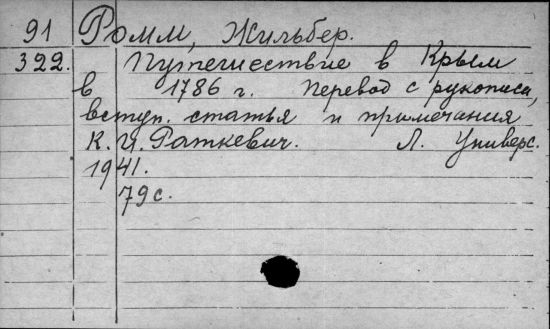 91 Ромм, Жильбер.
322. Путешествие в Крым
в 1786 г. Перевод с рукописи,
вступ. статья и примечания
К. И. Раткевич. Л. Универс.
1941.
79 с.